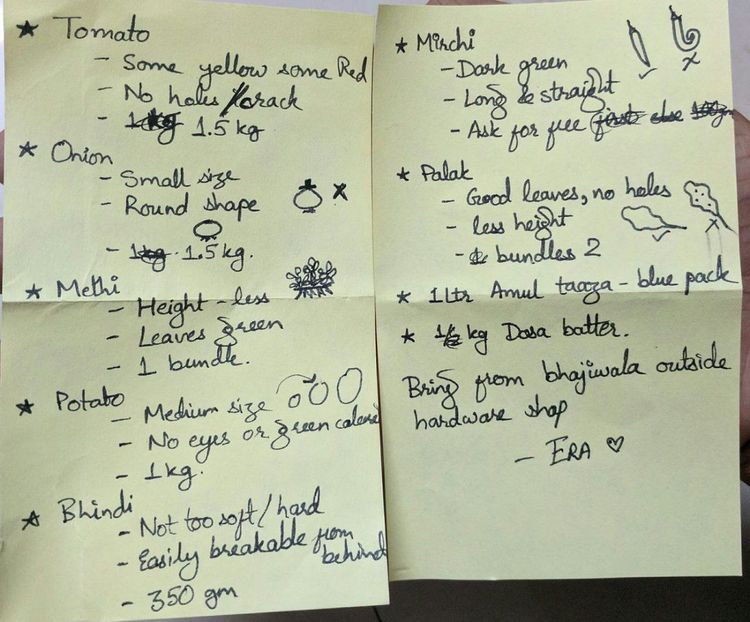 ★ Tomato
- Some yellow some Red
- No holes / crack
- 1.5 kg
★ Onion
- Small size
- Round shape
- 1kg 1.5 kg.
★ Methi
- Height - less
- Leaves green
- 1 bundle.
★ Potato
- Medium size
- No eyes or green
- 1kg.
★ Bhindi
- Not too soft/hard
- Easily breakable from
behind
- 350 gm
★ Mirchi
- Dark green
- Long & straight
- Ask for free first else 100gm
★ Palak
- Good leaves, no holes
- less height
- bundles 2
★ 1 ltr Amul taaza - blue pack
★ 1/2 kg Dosa batter.
Bring from bhajiwala outside
hardware shop
- ERA ♡